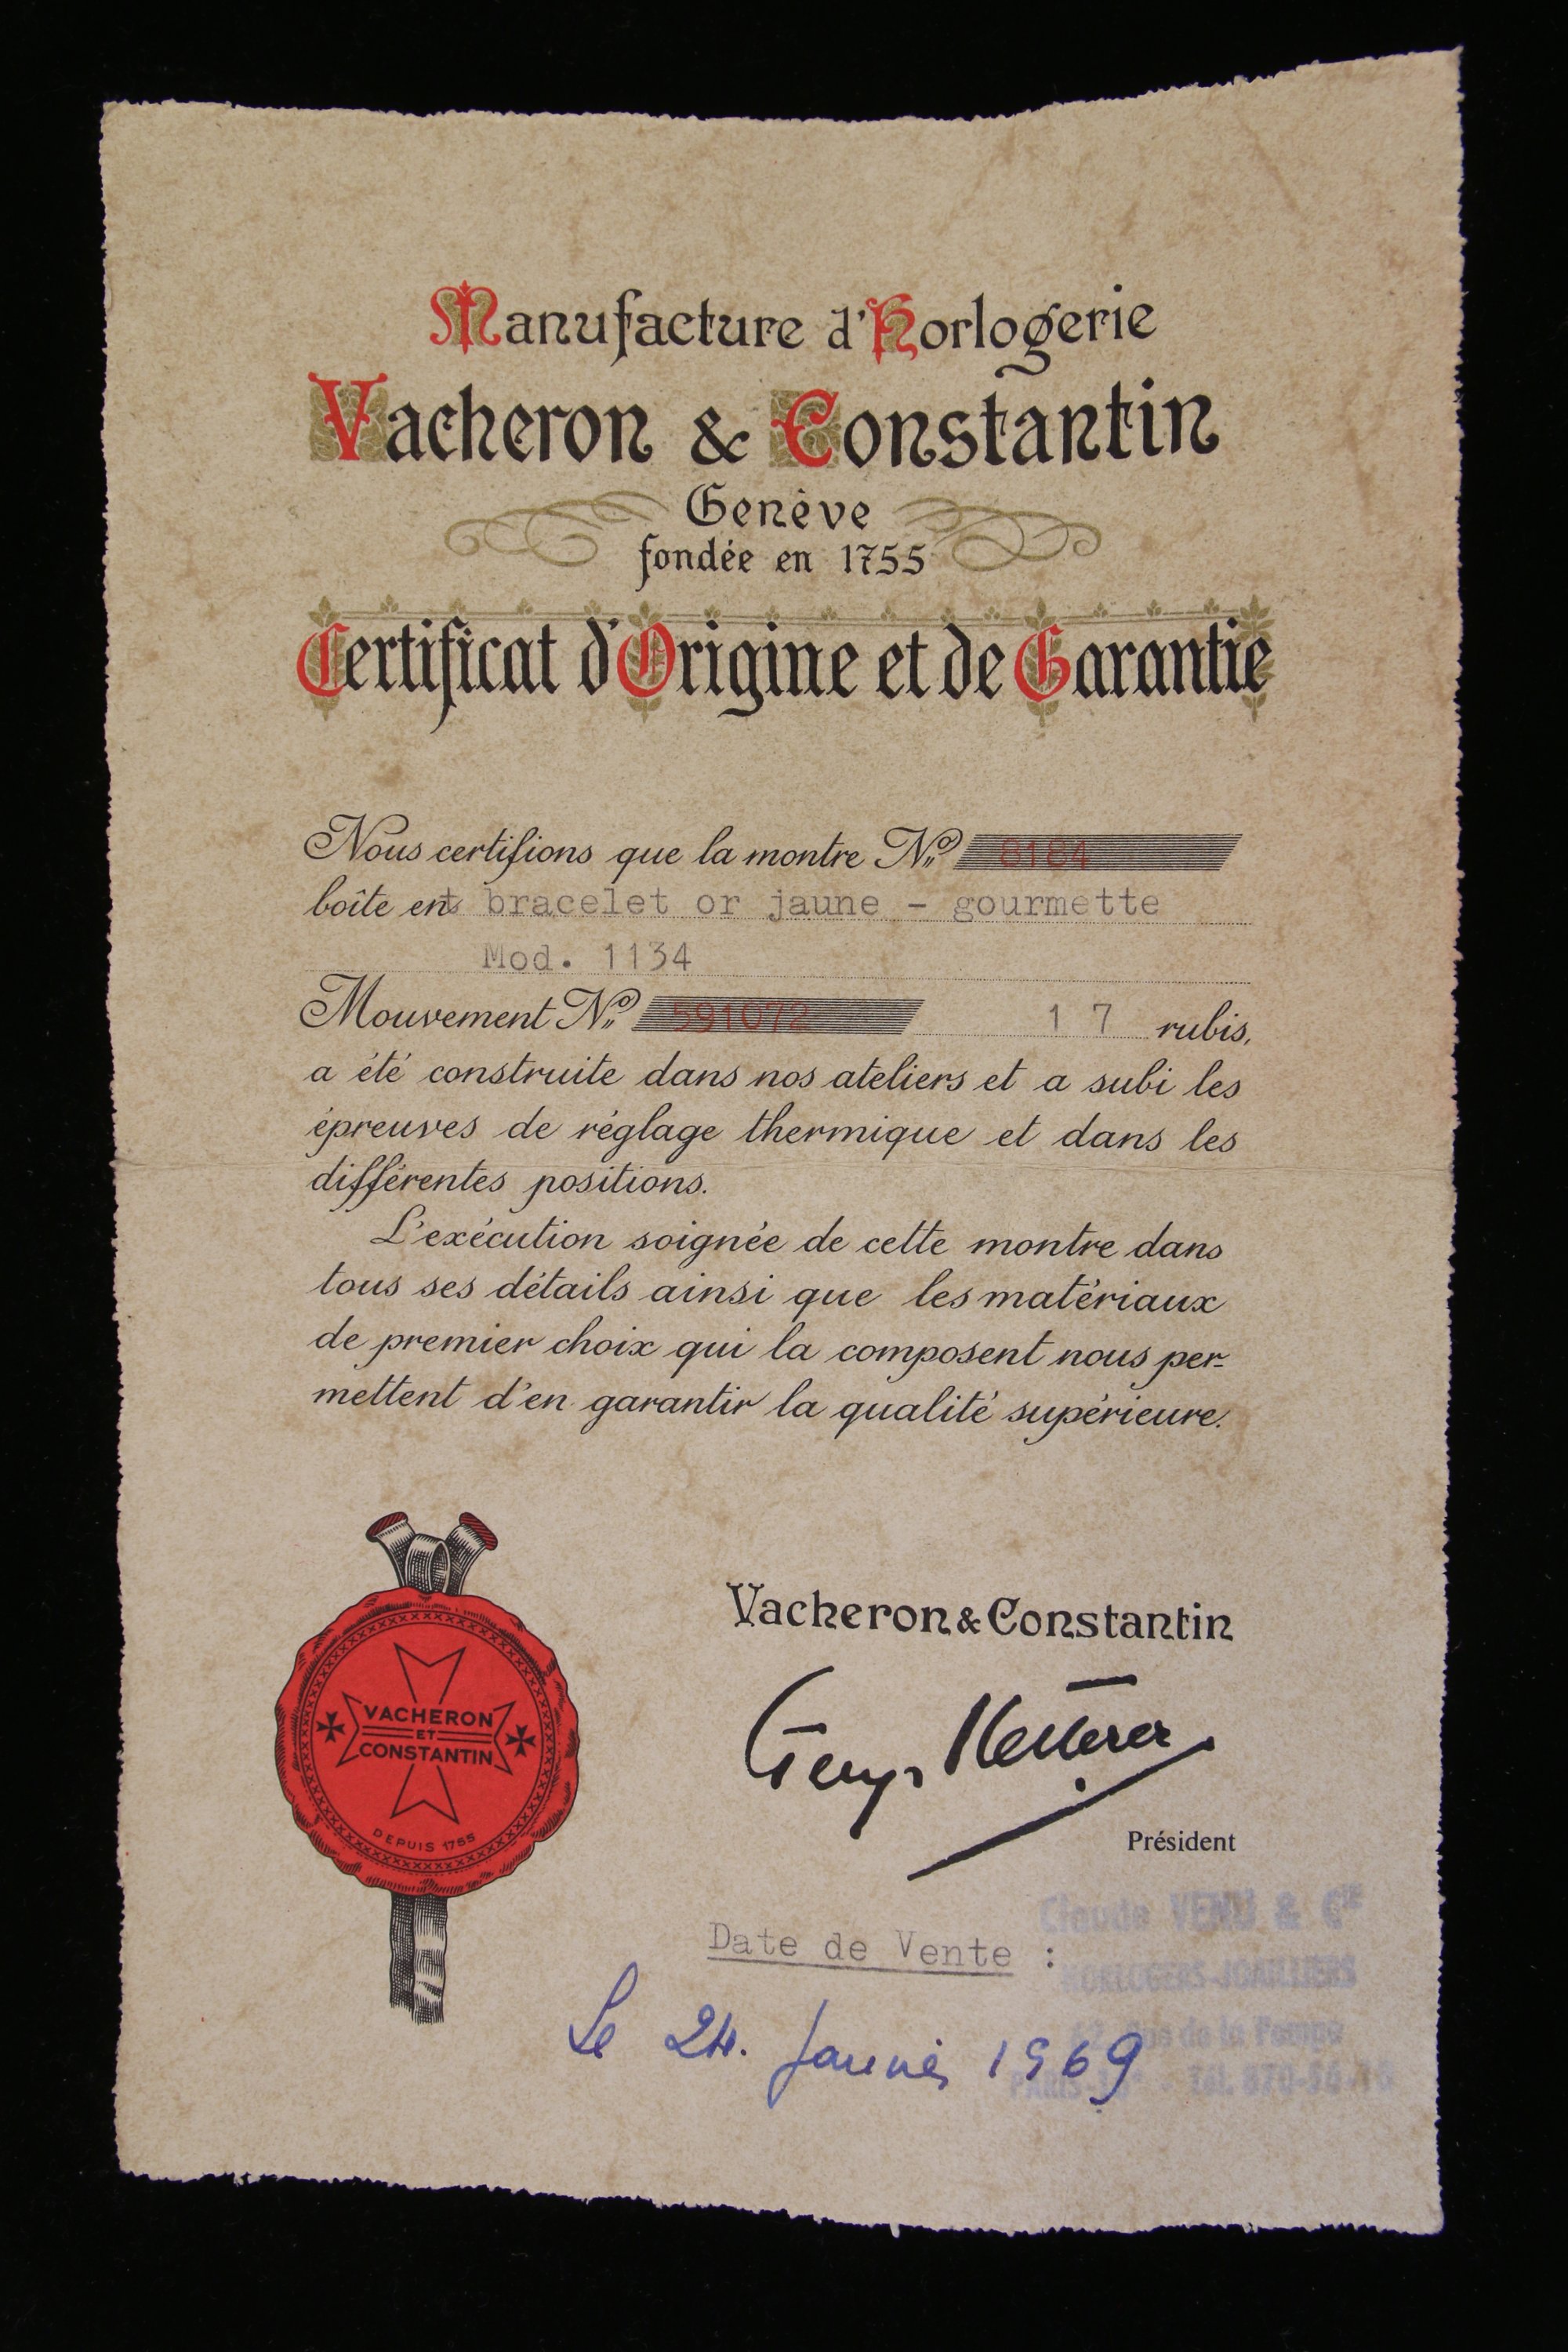 Manufacture d'Horlogerie
Vacheron & Constantin
Genève
fondée en 1755
Certificat d'Origine et de Garantie
Nous certifions que la montre No. 8184
boîte ent bracelet or jaune - gourmette
Mod. 1134
Mouvement No. 591072 17 rubis,
a été construite dans nos ateliers et a subi les
épreuves de réglage thermique et dans les
différentes positions.
L'exécution soignée de cette montre dans
tous ses détails ainsi que les matériaux
de premier choix qui la composent nous per-
mettent d'en garantir la qualité supérieure.
VACHERON
ET
CONSTANTIN
DEPUIS 1755
Vacheron & Constantin
Georges Ketterer
Président
Claude VENU & Cie
HORLOGERS-JOAILLIERS
Rue de la Pompe
PARIS Tél. 870-
Date de Vente :
Le 24. Janvier 1969